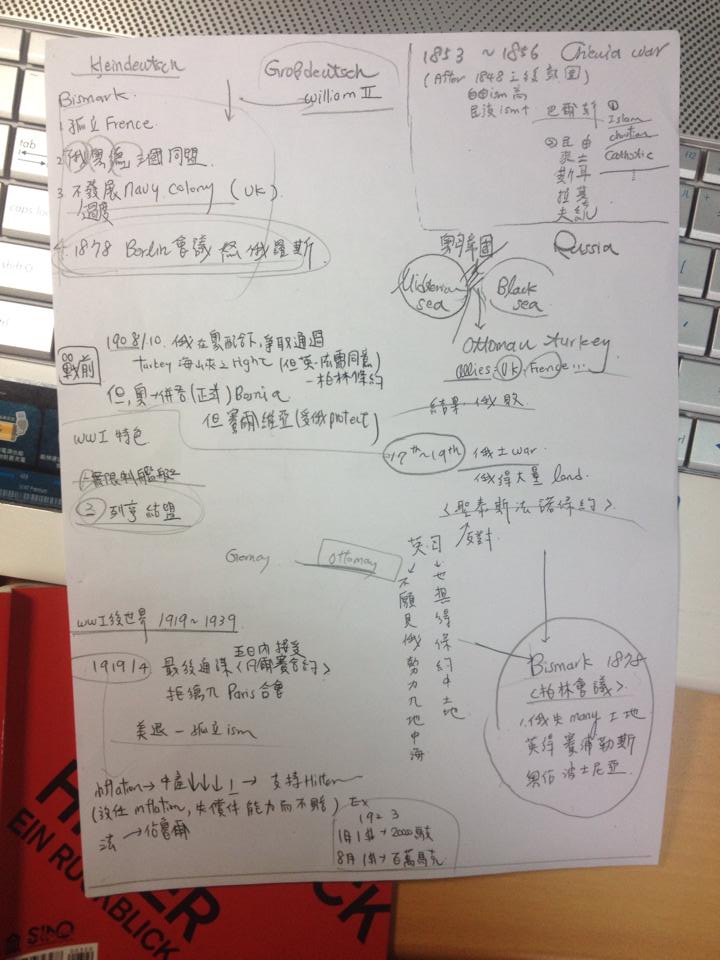 kleindeutsch
Großdeutsch
William II
Bismark.
1 孤立 Frence.
2 俄奧德 三國同盟.
3 不發展 navy colony (UK)
過度
4. 1878 Berlin 會議 怒俄羅斯
1853 ~ 1856 Chrimia war
(After 1848
自由ism 高
民族ism↑
巴爾幹
① Islam
christian
Catholic
Russia
Black sea
Ottoman turkey
allies: UK, Frence...
結果: 俄敗
戰前
1908/10. 俄在奧配合下, 爭取通過
turkey 海峽之 right (但英.法需同意)
—柏林條約
但, 奧→併吞(正式) Bosnia
但 賽爾維亞(受俄protect)
WWI 特色
1. 無限制艦艇
2. 列強結盟
17th~19th 俄土war.
俄得大量 land.
<聖泰斯法諾條約>.
反對
英.
不願見俄勢力入地中海
也想得保約中土地
Ottomay
WWI後世界 1919~1939
1919/4 最後通牒 <凡爾賽合約>
五日內接受
拒德入 Paris 合會
美退 — 孤立ism
inflation → 中產↓↓↓↓ → 支持Hitler
(放任 inflation, 失償伴能力而不賠)
法 → 佔魯爾
Ex
1923
1月 1$ → 20000馬克
8月 1$ → 百萬馬克
Bismark 1878
<柏林會議>.
1. 俄失 many 土地
英得賽浦勒斯
奧佔 波士尼亞
tab
caps lock
shift
EIN RÜCKBLICK